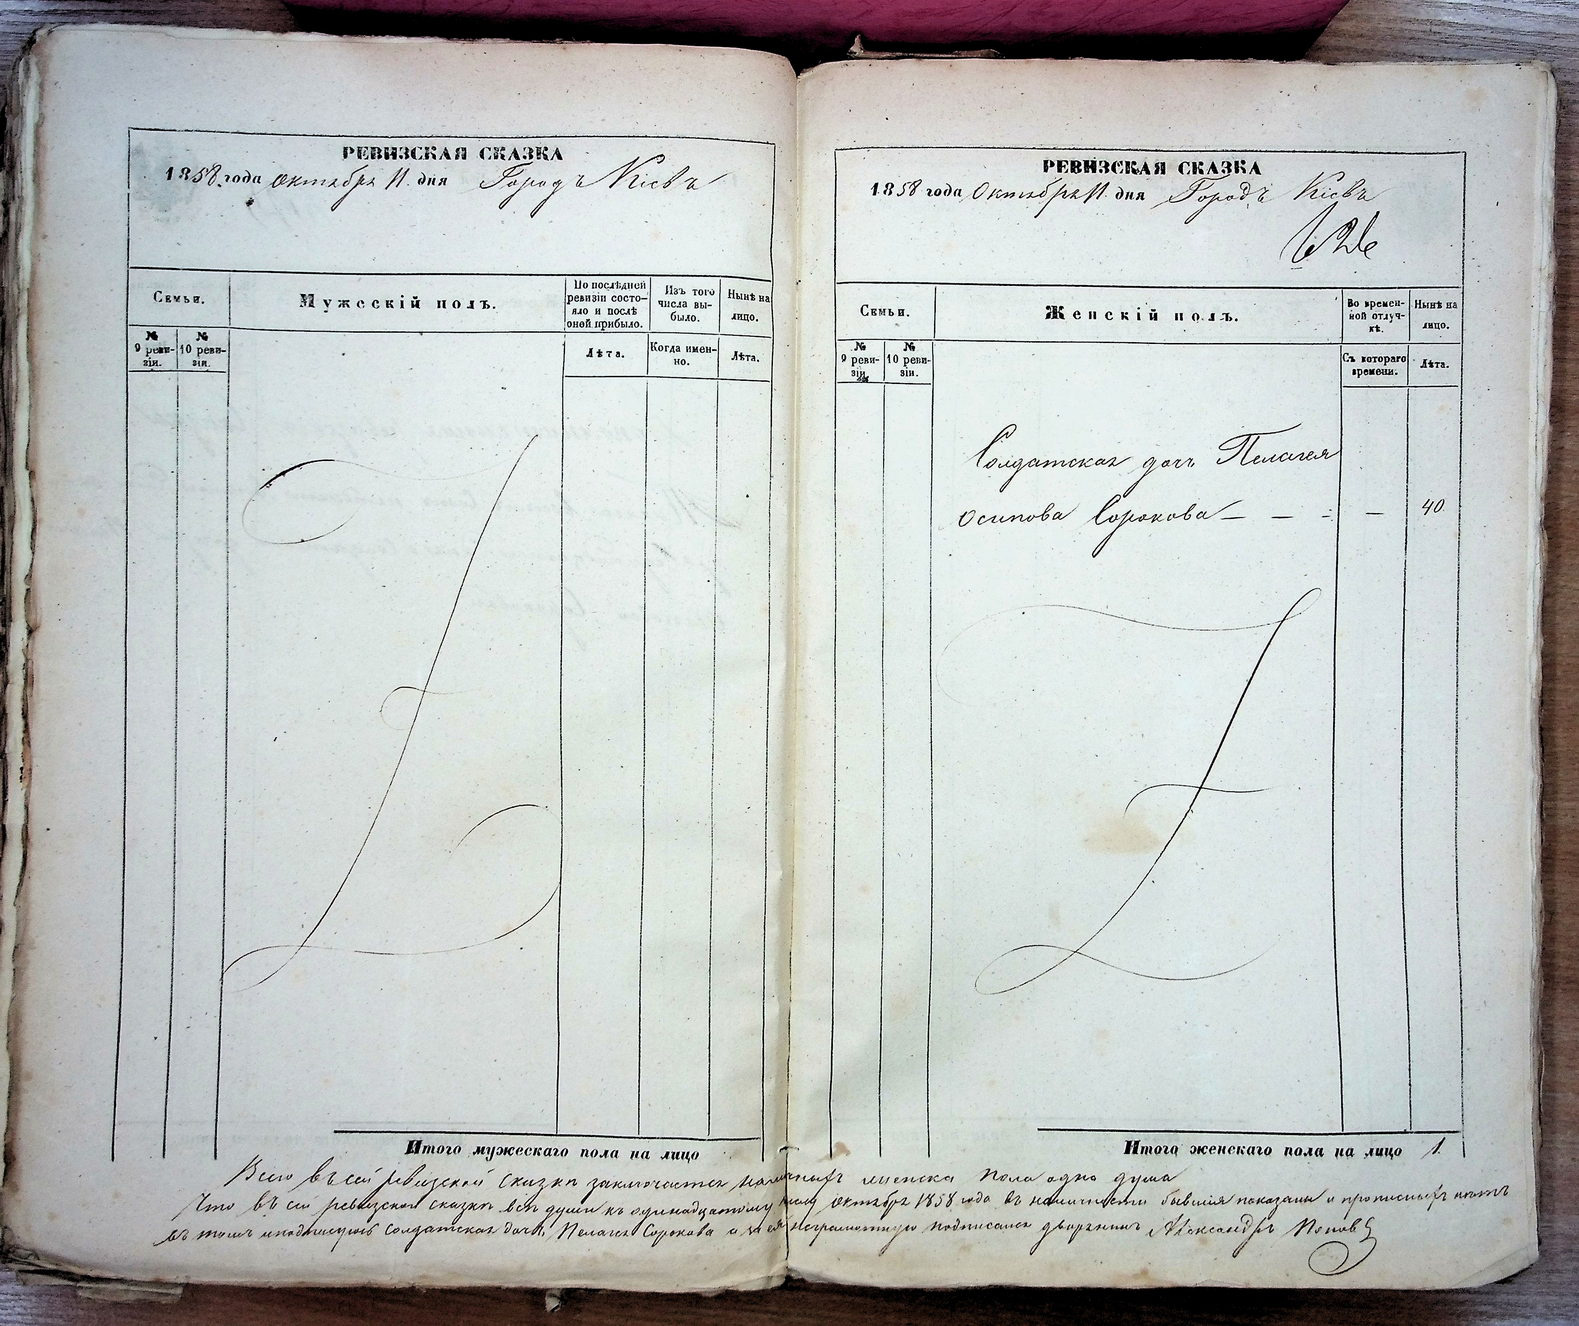 РЕВИЗСКАЯ СКАЗКА
1858 года октября 11 дня Городъ Кіевъ
Семьи.
Мужескій полъ.
По послѣдней ревизіи состояло и послѣ оной прибыло.
Изъ того числа выбыло.
Нынѣ на лицо.
№ 9 ревизіи.
№ 10 ревизіи.
Лѣта.
Когда именно.
Лѣта.
Итого мужескаго пола на лицо
РЕВИЗСКАЯ СКАЗКА
1858 года Октября 11 дня Городъ Кіевъ
Семьи.
Женскій полъ.
Во временной отлучкѣ.
Нынѣ на лицо.
№ 9 ревизіи.
№ 10 ревизіи.
Съ котораго времени.
Лѣта.
Солдатская дочь Пелагея
Осипова Сорокова — — — — 40
Итого женскаго пола на лицо 1.
Всего въ сей ревизской сказкѣ заключается наличныхъ женска пола одно душа
Что въ сей ревизской сказкѣ всѣ души къ одинадцатому числу октября 1858 года въ наличности бывшія показаны и прописныхъ нѣтъ
въ томъ Солдатская дочь Пелагея Сорокова а за ея неграмотную подписался дворянинъ Александръ Поповъ